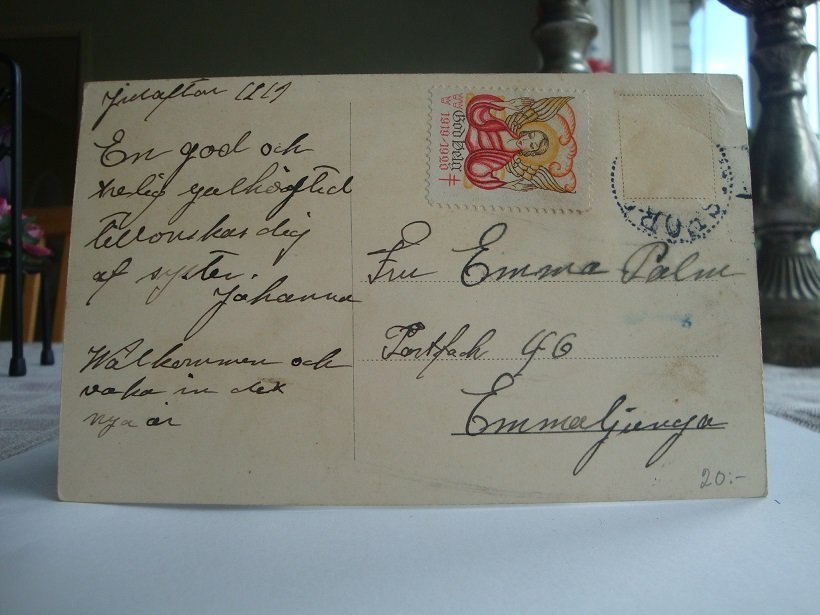 Julafton 1919
En god och
helig julhögtid
tillönskas dig
af syster.
Johanna
Wälkommen och
vaka in det
nya år
God Helg
1919-1920
Fru Emma Palm
Postfack 46
Emmaljunga
20:-